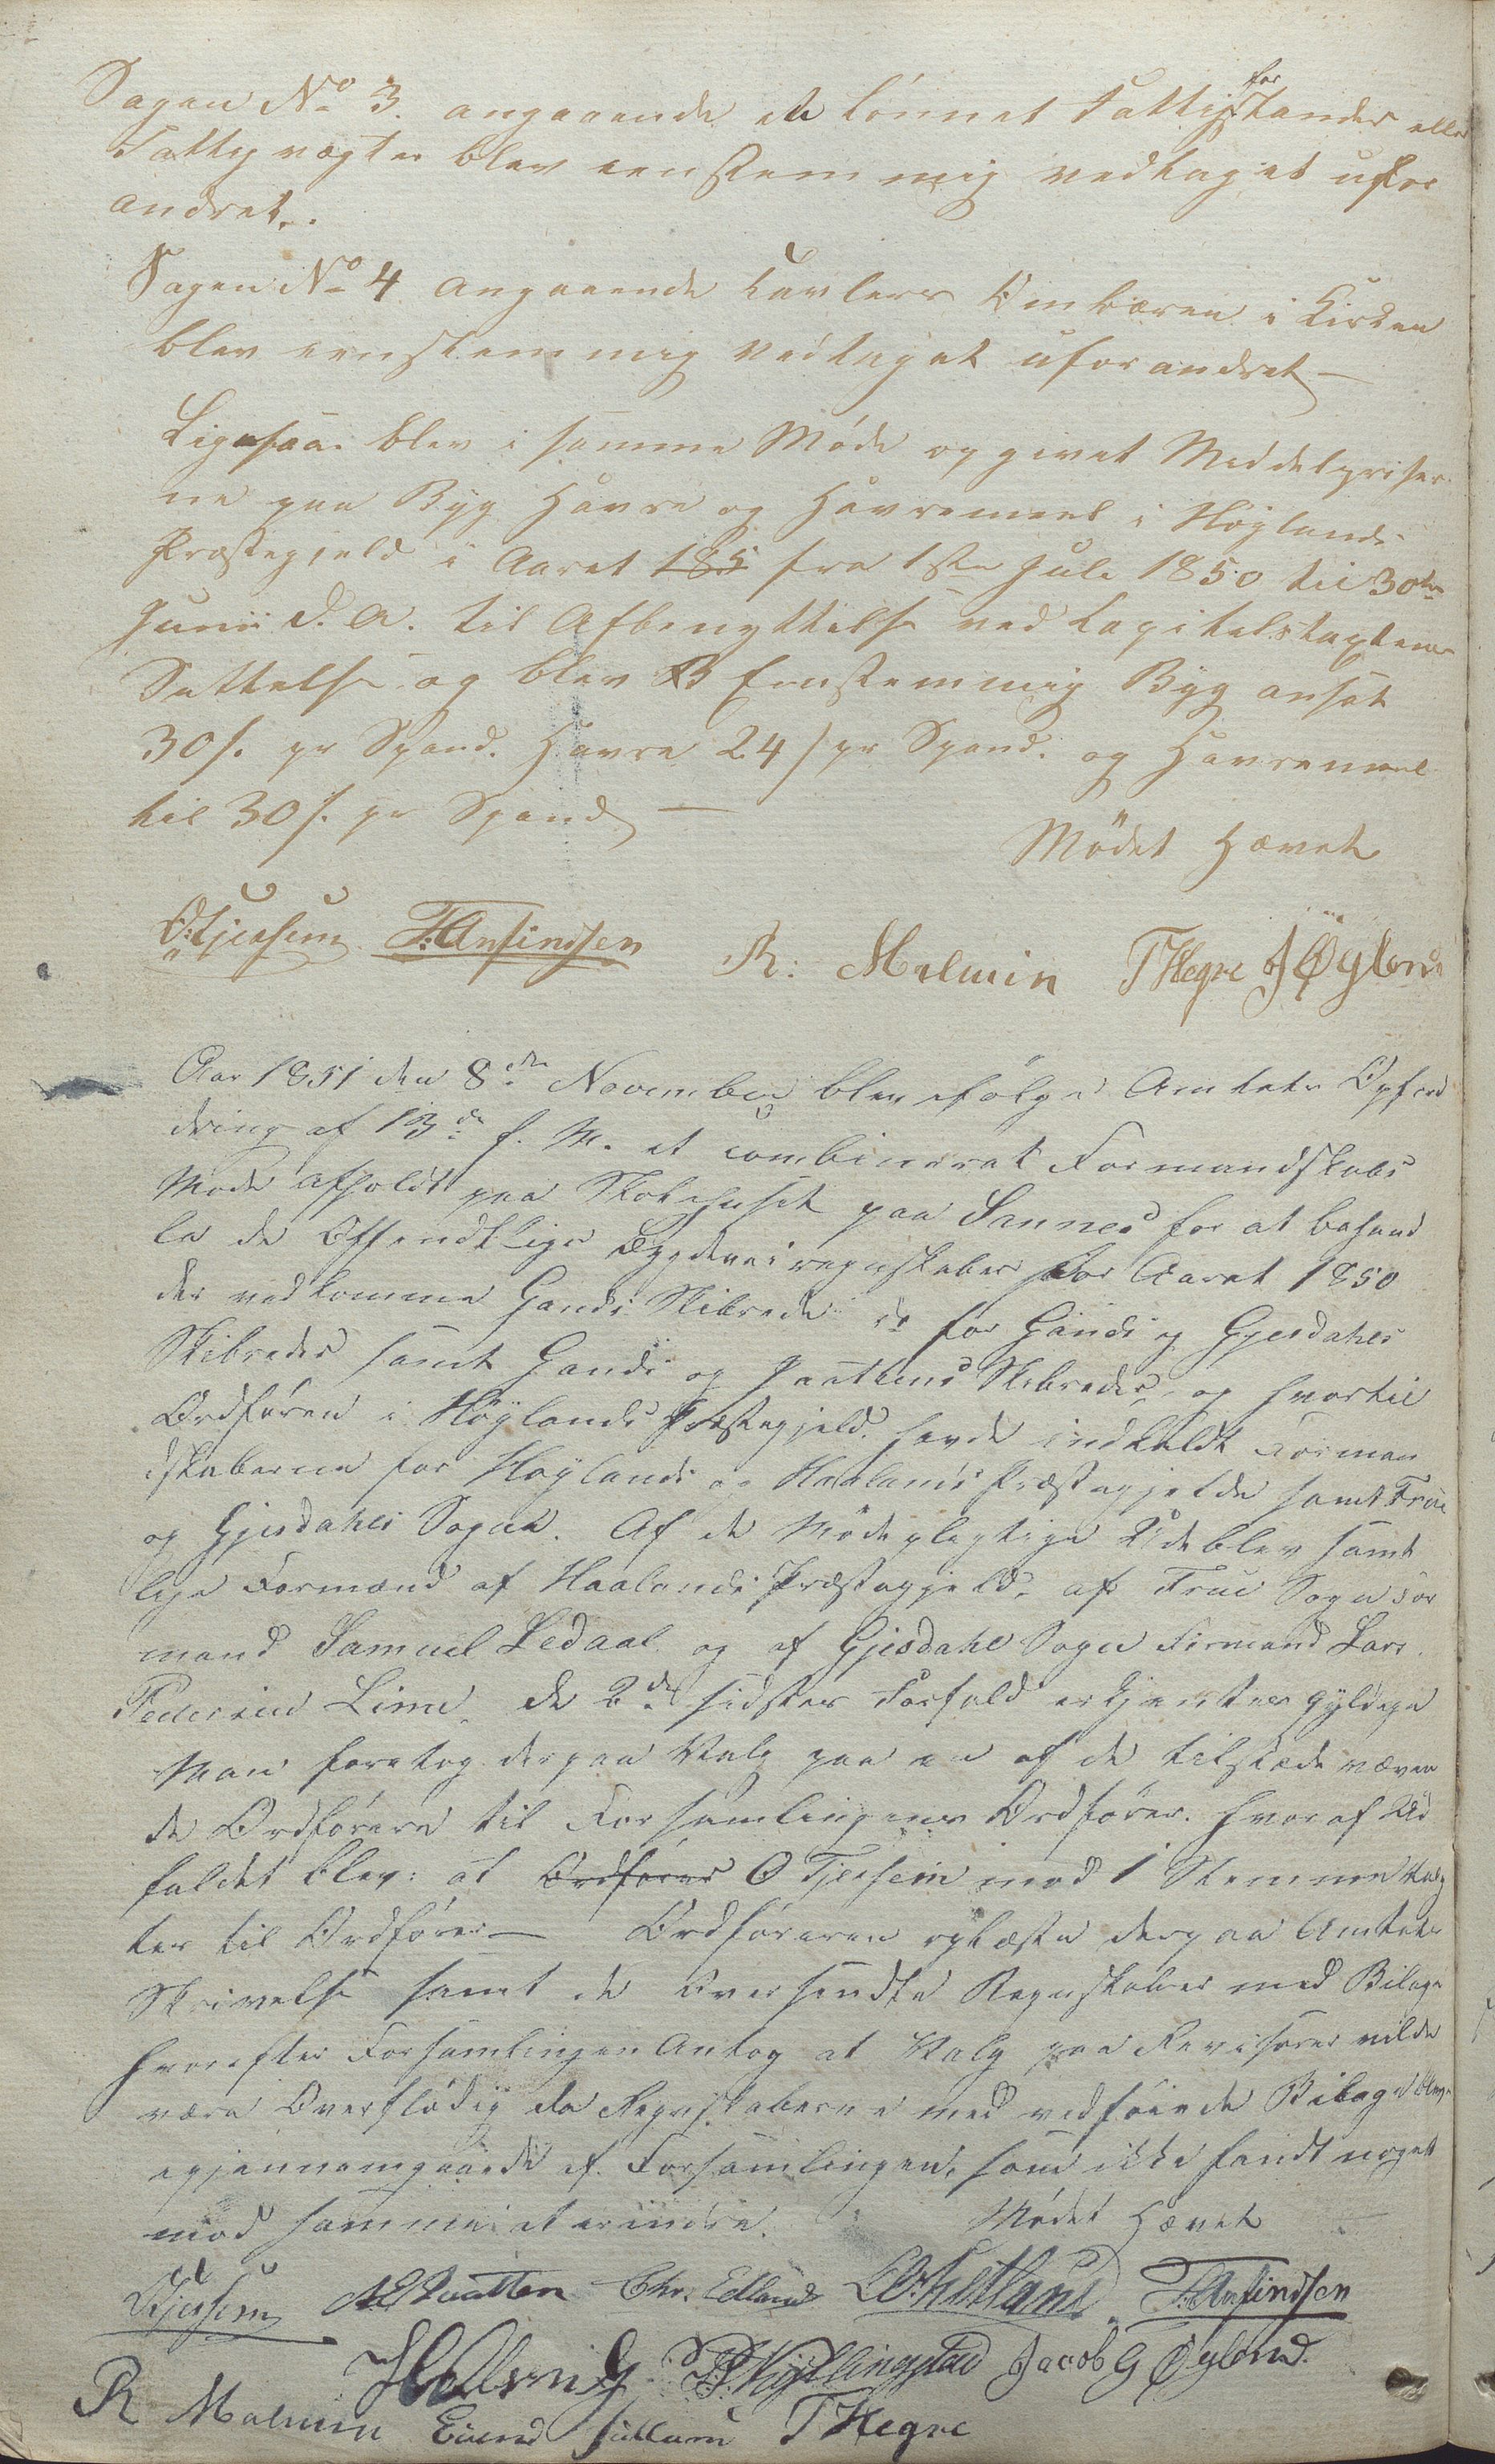 Sagen No 3. angaaende et lönnet Fattigforstander eller
Fattigvogter blev eenstemmig vedtaget ufor
andret.
Sagen No 4 angaaende Tavlers Ombæren i Kirken
blev eenstemmig Vedtaget uforandret —
Ligesaa blev i samme Möde opgivet Middelpriser
ne paa Byg Havre og Havremeel i Höylands
Præstegjeld i Aaret 185 fra 1ste Juli 1850 til 30te
Junii d. A. til Afbenyttelse ved Kapitelstaxtens
Settelse og blev Eenstemmig Byg ansat
30 s. pr Spand. Havre 24 s pr Spand. og Havremeel
til 30 s. pr Spand —
Mödet Hævet
O. Tjersem T. Anfindsen R. Malmin T Hegre J Øglend
Aar 1851 den 8de November blev ifölge Amtets Opfor
dring af 13de f. M. et combineret Formandskabs
Möde afholdt paa Skolehuset paa Sannes for at behand
le de Offendtlige Bygdeveiregnskaber for Aaret 1850
der vedkomme Gands Skibrede do for Gands og Gjesdahls
Skibreder samt Gands og Skibreder, og hvortil
Ordføren i Höylands Præstegjeld havde indkaldt Forman
dskaberne for Höylands og Haalands Præstegjelde samt Frue
og Gjesdahls Sogne. Af de Mödepligtige Udeblev samt
lige Formænd af Haalands Præstegjeld, af Frue Sogn For
mand Samuel Ledaal og af Gjesdahl Sogn Formand Lars
Pedersen Lime. de 2de sidstes Forfald erkjentes gyldige
Man foretog derpaa Valg paa en af de tilstedeværen
de Ordförere til Forsamlingens Ordförer. hvoraf Ud
faldet blev: at Ordförer O Tjersem med 1 Stemme valg
tes til Ordförer — Ordföreren oplæste derpaa Amtets
Skrivelse samt de Oversendte Regnskaber med Bilage
hvorefter Forsamlingen Antog at Valg paa Revisorer vilde
være Overflödig da Regnskaberne med vedföiede Bilage blev
igjennemgaaede af Forsamlingen, som ikke fandt noget
mod samme at erindre. Mödet Hævet
O Tjersem Chr. Edland T. Anfindsen
Jacob G Øglend.
R Malmin T Hegre